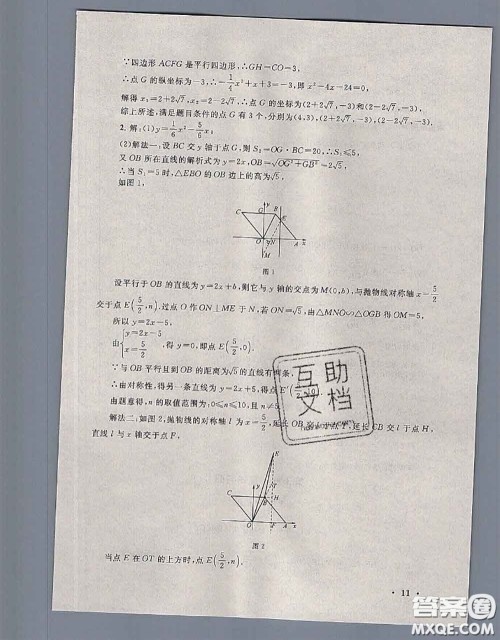 ∵四边形 ACFG 是平行四边形,∴GH=CO=3,
∴点 G 的纵坐标为 -3,∴-1/4x²+x+3=-3,即 x²-4x-24=0,
解得 x₁=2+2√7,x₂=2-2√7,∴点 G 的坐标为(2+2√7,-3)和(2-2√7,-3).
综上所述,满足题目条件的点 G 有 3 个,分别为(4,3),(2+2√7,-3),(2-2√7,-3).
2. 解:(1)y=1/6x²-5/6x;
(2)解法一:设 BC 交 y 轴于点 G,则 S₂=OG·BC=20,∴S₁≤5,
又 OB 所在直线的解析式为 y=2x,OB=√(OG²+GB²)=2√5,
∴当 S₁=5 时,△EBO 的 OB 边上的高为√5,
如图 1,
y
C G B
E
O N A x
M
图 1
设平行于 OB 的直线为 y=2x+b,则它与 y 轴的交点为 M(0,b),与抛物线对称轴 x=5/2
交于点 E(5/2,n).过点 O 作 ON⊥ME 于 N,若 ON=√5,由△MNO∽△OGB 得 OM=5,
所以 y=2x-5,
由{y=2x-5 x=5/2,得 y=0,即点 E(5/2,0).
∵与 OB 平行且到 OB 的距离为√5 的直线有两条,
∴由对称性,得另一条直线为 y=2x+5,得点 E′(5/2,10).
由题意得,n 的取值范围为:0≤n≤10,且 n≠5.
解法二:如图 2,抛物线的对称轴 l 为 x=5/2,延长 OB 交 l 于点 T,延长 CB 交 l 于点 H,
直线 l 与 x 轴交于点 F,
E
y T
C B H
O F A x
图 2
当点 E 在 OT 的上方时,点 E(5/2,n),
· 11 ·
互助
文档
答案圈
MXQE.COM